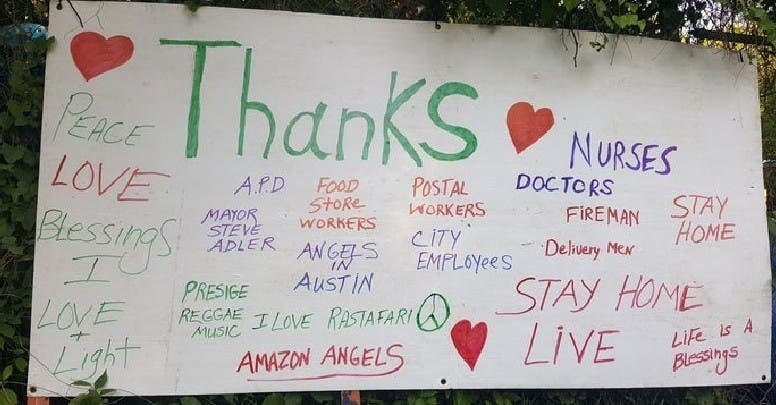 Thanks
PEACE
LOVE
Blessings
I
LOVE
+
Light
A.P.D
MAYOR
STEVE
ADLER
FOOD
STORE
WORKERS
ANGELS
IN
AUSTIN
POSTAL
WORKERS
CITY
EMPLOYEES
NURSES
DOCTORS
FIREMAN
Delivery Men
STAY
HOME
PRESIGE
REGGAE
MUSIC
I LOVE RASTAFARI
AMAZON ANGELS
STAY HOME
LIVE
LIFE IS A
Blessings